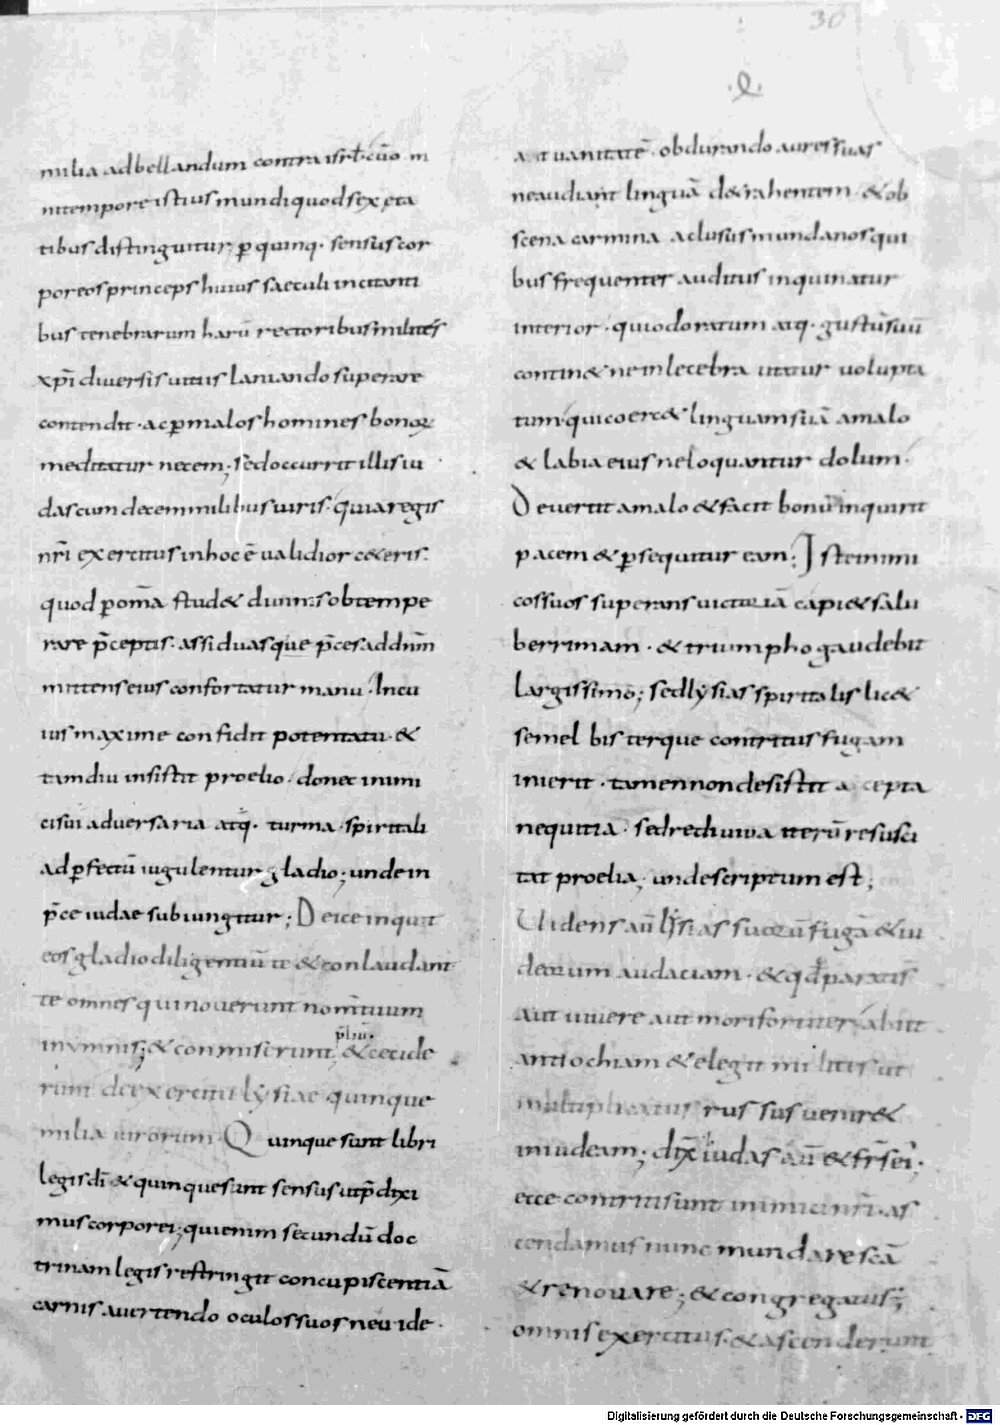 30
milia adbellandum contra isrl̄. cūo m
intempore istius mundi quod sex ęta
tibus distinguitur; ꝑ quinq· sensus cor
poreos princeps huius saeculi incitanti
bus tenebrarum harū rectoribus milites
xp̄i diversis vitiis laniando superare
contendit· ac ꝑ malos homines bonoꝝ
meditatur necem; sed occurrit illis iu
das cum decem milibus viris. quia regis
nr̄i exercitus in hoc ē validior ceteris.
quod ꝑ om̄a stud& divinis obtempe
rare p̄ceptis· assiduasque p̄ces ad dn̄m
mittens eius confortatur manu. In cu
ius maxime confidit potentatu &
tamdiu insistit proelio· donec inimi
ci sui adversaria atq· turma· spiritali
ad ꝑfectū iugulentur gladio; unde in
p̄ce iudae subiungitur; Deice inquit
eos gladio diligentiū te & conlaudant
te omnes qui noverunt nom̄ tuum
in ymnis; & conmiserunt, p̄liū. & cecide
runt de exercitu lysiae quinque
milia virorum· Quinque sunt libri
legis dī & quinque sunt sensus ut p̄dixi
mus corporei; qui enim secundū doc
trinam legis restringit concupiscentiā
carnis avertendo oculos suos ne vide
ant vanitatē· obdurando aures suas
ne audiant linguā detrahentem· & ob
scena carmina ac lusus mundanos qui
bus frequenter auditus inquinatur
interior· qui odoratum atq· gustū suū
contin& ne inlecebra utatur volupta
tum· qui coerc& linguam suā a malo
& labia eius ne loquantur dolum.
Devertit a malo & facit bonū inquirit
pacem & ꝑsequitur eam; Iste inimi
cos suos superans victoriā capi& salu
berrimam· & triumpho gaudebit
largissimo; sed lysias spiritalis lic&
semel bis terque contritus fugam
inierit· tamen non desistit a cepta
nequitia· sed rediviva iterū resusci
tat proelia; unde scriptum est;
Videns aū lysias suorū fugā & iu
deorum audaciam· & qd̄ parati sт̄
aut vivere aut mori fortiter; abiit
antiochiam & elegit milites ut
multiplicatus rursus venir&
in iudeam; dix̄ iudas aū & fr̄s ei;
ecce contriti sunt inimici nr̄i· as
cendamus nunc mundare sc̄ā
& renovare; & congregatus;
omnis exercitus· & ascenderunt
Digitalisierung gefördert durch die Deutsche Forschungsgemeinschaft - DFG